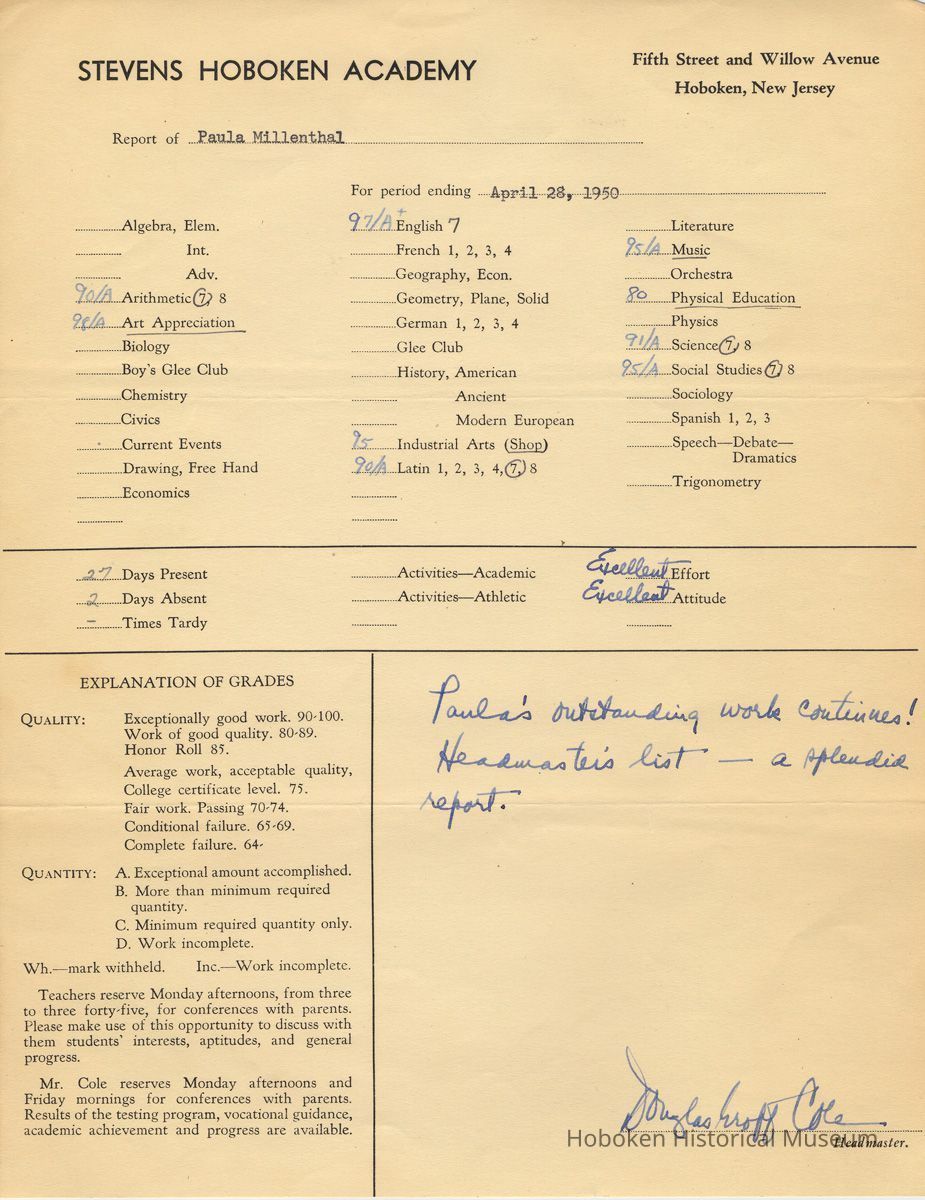 STEVENS HOBOKEN ACADEMY
Fifth Street and Willow Avenue
Hoboken, New Jersey
Report of Paula Millenthal
For period ending April 28, 1950
Algebra, Elem.
Int.
Adv.
90/A Arithmetic 7, 8
98/A Art Appreciation
Biology
Boy's Glee Club
Chemistry
Civics
Current Events
Drawing, Free Hand
Economics
97/A+ English 7
French 1, 2, 3, 4
Geography, Econ.
Geometry, Plane, Solid
German 1, 2, 3, 4
Glee Club
History, American
Ancient
Modern European
95 Industrial Arts (Shop)
90/A Latin 1, 2, 3, 4, 7, 8
Literature
95/A Music
Orchestra
80 Physical Education
Physics
91/A Science 7, 8
95/A Social Studies 7, 8
Sociology
Spanish 1, 2, 3
Speech—Debate—
Dramatics
Trigonometry
27 Days Present
2 Days Absent
– Times Tardy
Activities—Academic
Activities—Athletic
Excellent Effort
Excellent Attitude
EXPLANATION OF GRADES
QUALITY: Exceptionally good work. 90-100.
Work of good quality. 80-89.
Honor Roll 85.
Average work, acceptable quality,
College certificate level. 75.
Fair work. Passing 70-74.
Conditional failure. 65-69.
Complete failure. 64-
QUANTITY: A. Exceptional amount accomplished.
B. More than minimum required
quantity.
C. Minimum required quantity only.
D. Work incomplete.
Wh.—mark withheld. Inc.—Work incomplete.
Teachers reserve Monday afternoons, from three
to three forty-five, for conferences with parents.
Please make use of this opportunity to discuss with
them students' interests, aptitudes, and general
progress.
Mr. Cole reserves Monday afternoons and
Friday mornings for conferences with parents.
Results of the testing program, vocational guidance,
academic achievement and progress are available.
Paula's outstanding work continues!
Headmaster's list — a splendid
report.
Douglas Groff Cole
Headmaster.
Hoboken Historical Museum